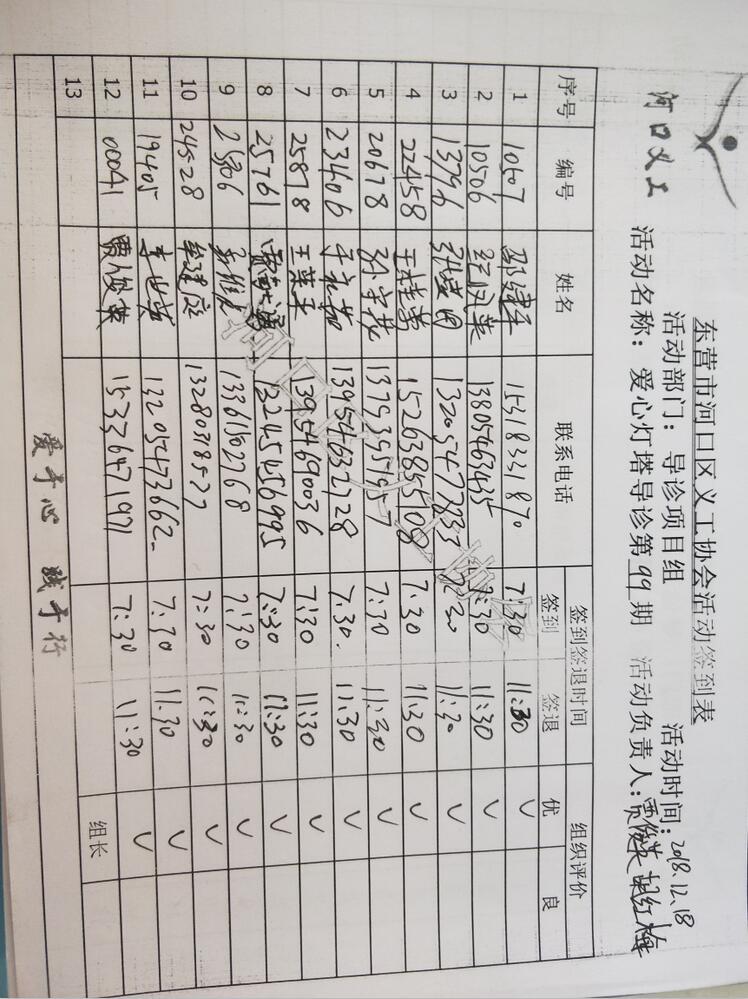 河口义工
东营市河口区义工协会活动签到表
活动部门：导诊项目组 活动时间：2018.12.18
活动名称：爱心灯塔导诊第99期 活动负责人：贾俊英 胡红梅
序号 编号 姓名 联系电话 签到签退时间 组织评价
签到 签退 优 良
1 10507 邵建平 15318331870 7:30 11:30 √
2 10506 纪凤英 13805463435 7:30 11:30 √
3 13796 13205477833 7:30 11:30 √
4 22458 王桂芳 15263855108 7:30 11:30 √
5 20678 孙宝花 7:30 11:30 √
6 23406 13954632728 7:30. 11:30 √
7 25878 王英子 13954690036 7:30 11:30 √
8 25761 7:30 11:30 √
9 13361502768 7:30 11:30 √
10 24528 7:30 11:30 √
11 19405 李世芳 13205473662 7:30 11:30 √
12 00041 贾俊英 15336471971 7:30 11:30 √
13 组长
爱于心 践于行
河口区义工协会